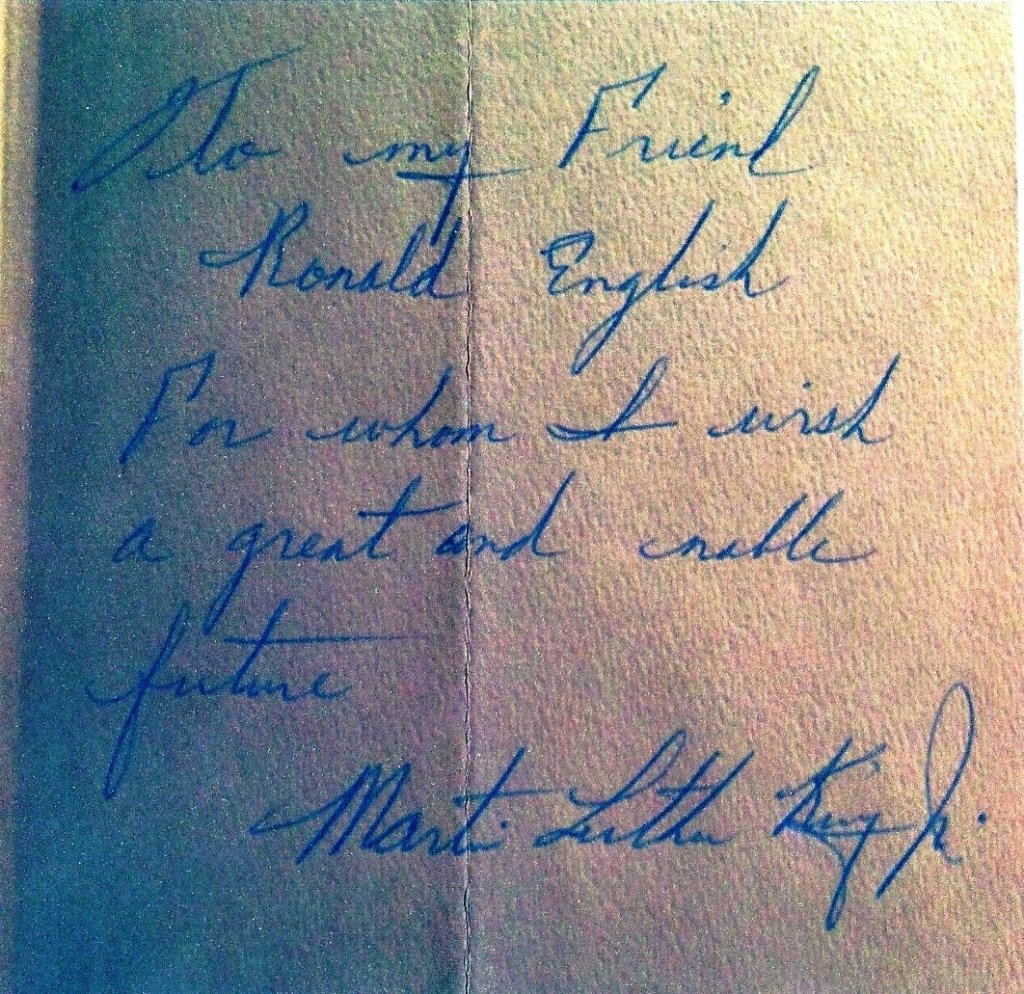 To my Friend
Ronald English
For whom I wish
a great and noble
future
Martin Luther King Jr.